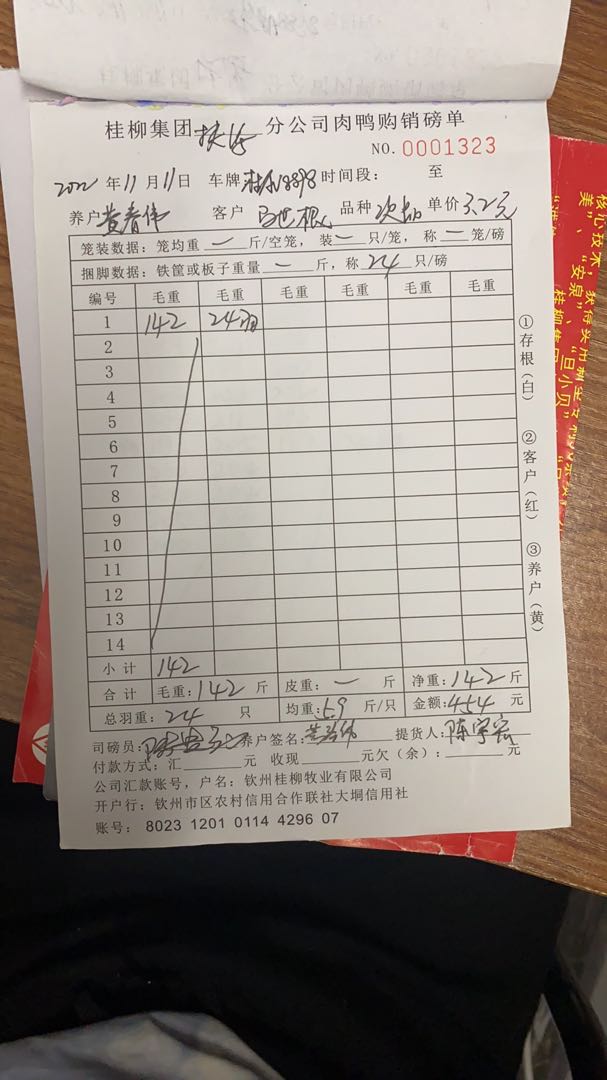 桂柳集团 分公司肉鸭购销磅单
NO. 0001323
2022年11月11日 车牌 时间段： 至
养户 黄春伟 客户 马世根 品种 次品 单价 3.2元
笼装数据：笼均重 一 斤/空笼，装 一 只/笼，称 一 笼/磅
捆脚数据：铁筐或板子重量 一 斤，称 24 只/磅
编号 毛重 毛重 毛重 毛重 毛重 毛重
1 142 24羽
2
3
4
5
6
7
8
9
10
11
12
13
14
小计 142
合计 毛重：142 斤 皮重：一 斤 净重：142 斤
总羽重：24 只 均重：5.9 斤/只 金额：454 元
司磅员： 养户签名： 提货人：陈宇宏
付款方式：汇 元 收现 元欠（余）： 元
公司汇款账号，户名：钦州桂柳牧业有限公司
开户行：钦州市区农村信用合作联社大垌信用社
账号：8023 1201 0114 4296 07
①存根（白） ②客户（红） ③养户（黄）